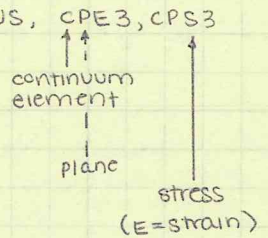 US, CPE3, CPS3
continuum
element
plane
stress
(E=strain)